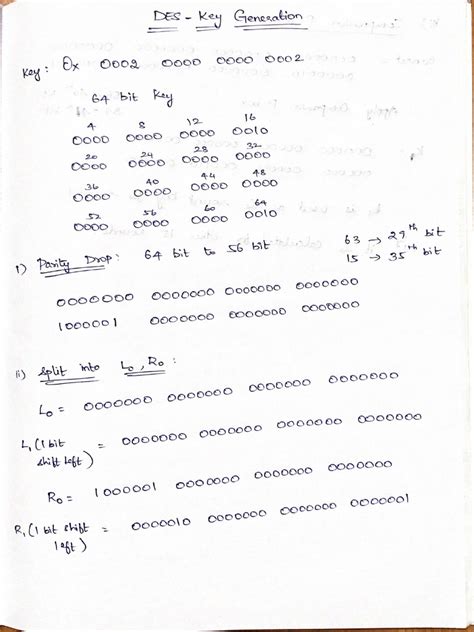 DES - Key Generation
Key: 0x 0002 0000 0000 0002
64 bit key
4 8 12 16
0000 0000 0000 0010
20 24 28 32
0000 0000 0000 0000
36 40 44 48
0000 0000 0000 0000
52 56 60 64
0000 0000 0000 0010
i) Parity Drop: 64 bit to 56 bit 63 → 29th bit
15 → 35th bit
0000000 0000000 0000000 0000000
1000001 0000000 0000000 0000000
ii) Split into L0, R0 :
L0 = 0000000 0000000 0000000 0000000
L1 (1 bit shift left) = 0000000 0000000 0000000 0000000
R0 = 1000001 0000000 0000000 0000000
R1 (1 bit shift left) = 0000010 0000000 0000000 0000001